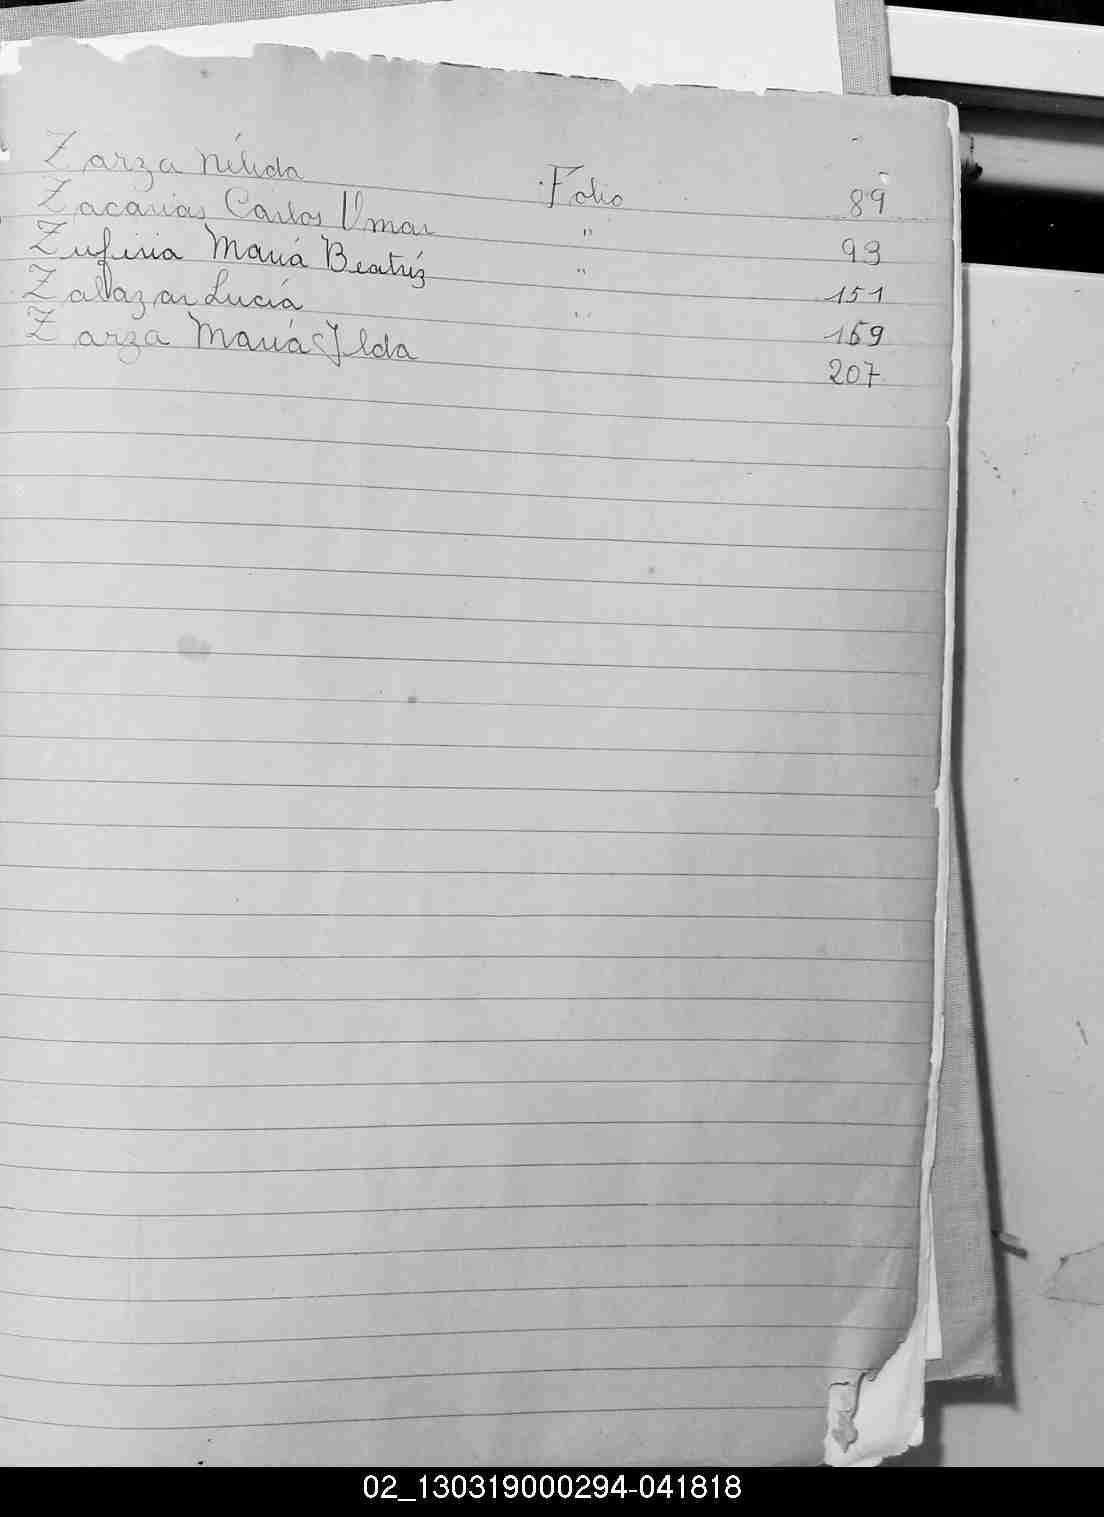 Zarza Nélida Folio 89
Zacarias Carlos Omar " 93
Zufiria Mariá Beatríz " 151
Zalazar Luciá " 169
Zarza Mariá Ilda 207
02_130319000294-041818